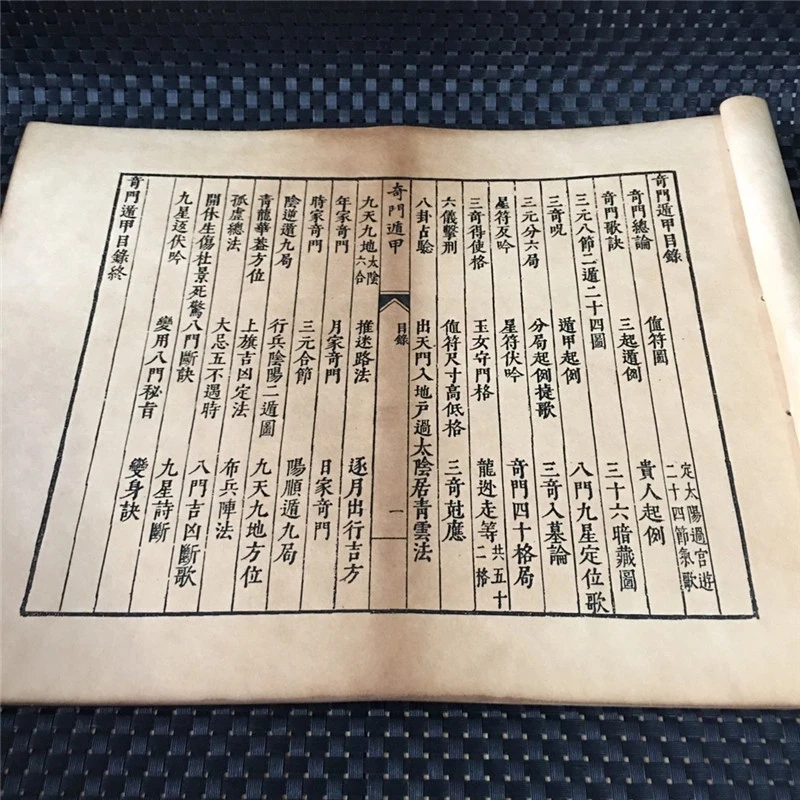 奇門遁甲目錄
奇門總論 值符圖 定太陽過宮遊二十四節氣歌
奇門歌訣 三起遁例 貴人起例
三元八節二遁二十四圖 三十六暗藏圖
三奇呪 遁甲起例 八門九星定位歌
三元分六局 分局起例捷歌 三奇入墓論
星符反吟 星符伏吟 奇門四十格局
三奇得使格 玉女守門格 龍逃走等共五十二格
六儀擊刑 值符尺寸高低格 三奇尅應
八卦占驗 出天門入地戶過太陰居青雲法
奇門遁甲 目錄 一
九天九地太陰六合 推迷路法 逐月出行吉方
年家奇門 月家奇門 日家奇門
時家奇門 三元合節 陽順遁九局
陰逆遁九局 行兵陰陽二遁圖 九天九地方位
青龍華蓋方位 上旗吉凶定法 布兵陣法
孤虛總法 大忌五不遇時 八門吉凶斷歌
開休生傷杜景死驚八門斷訣 九星詩斷
九星返伏吟 變用八門秘旨 變身訣
奇門遁甲目錄終